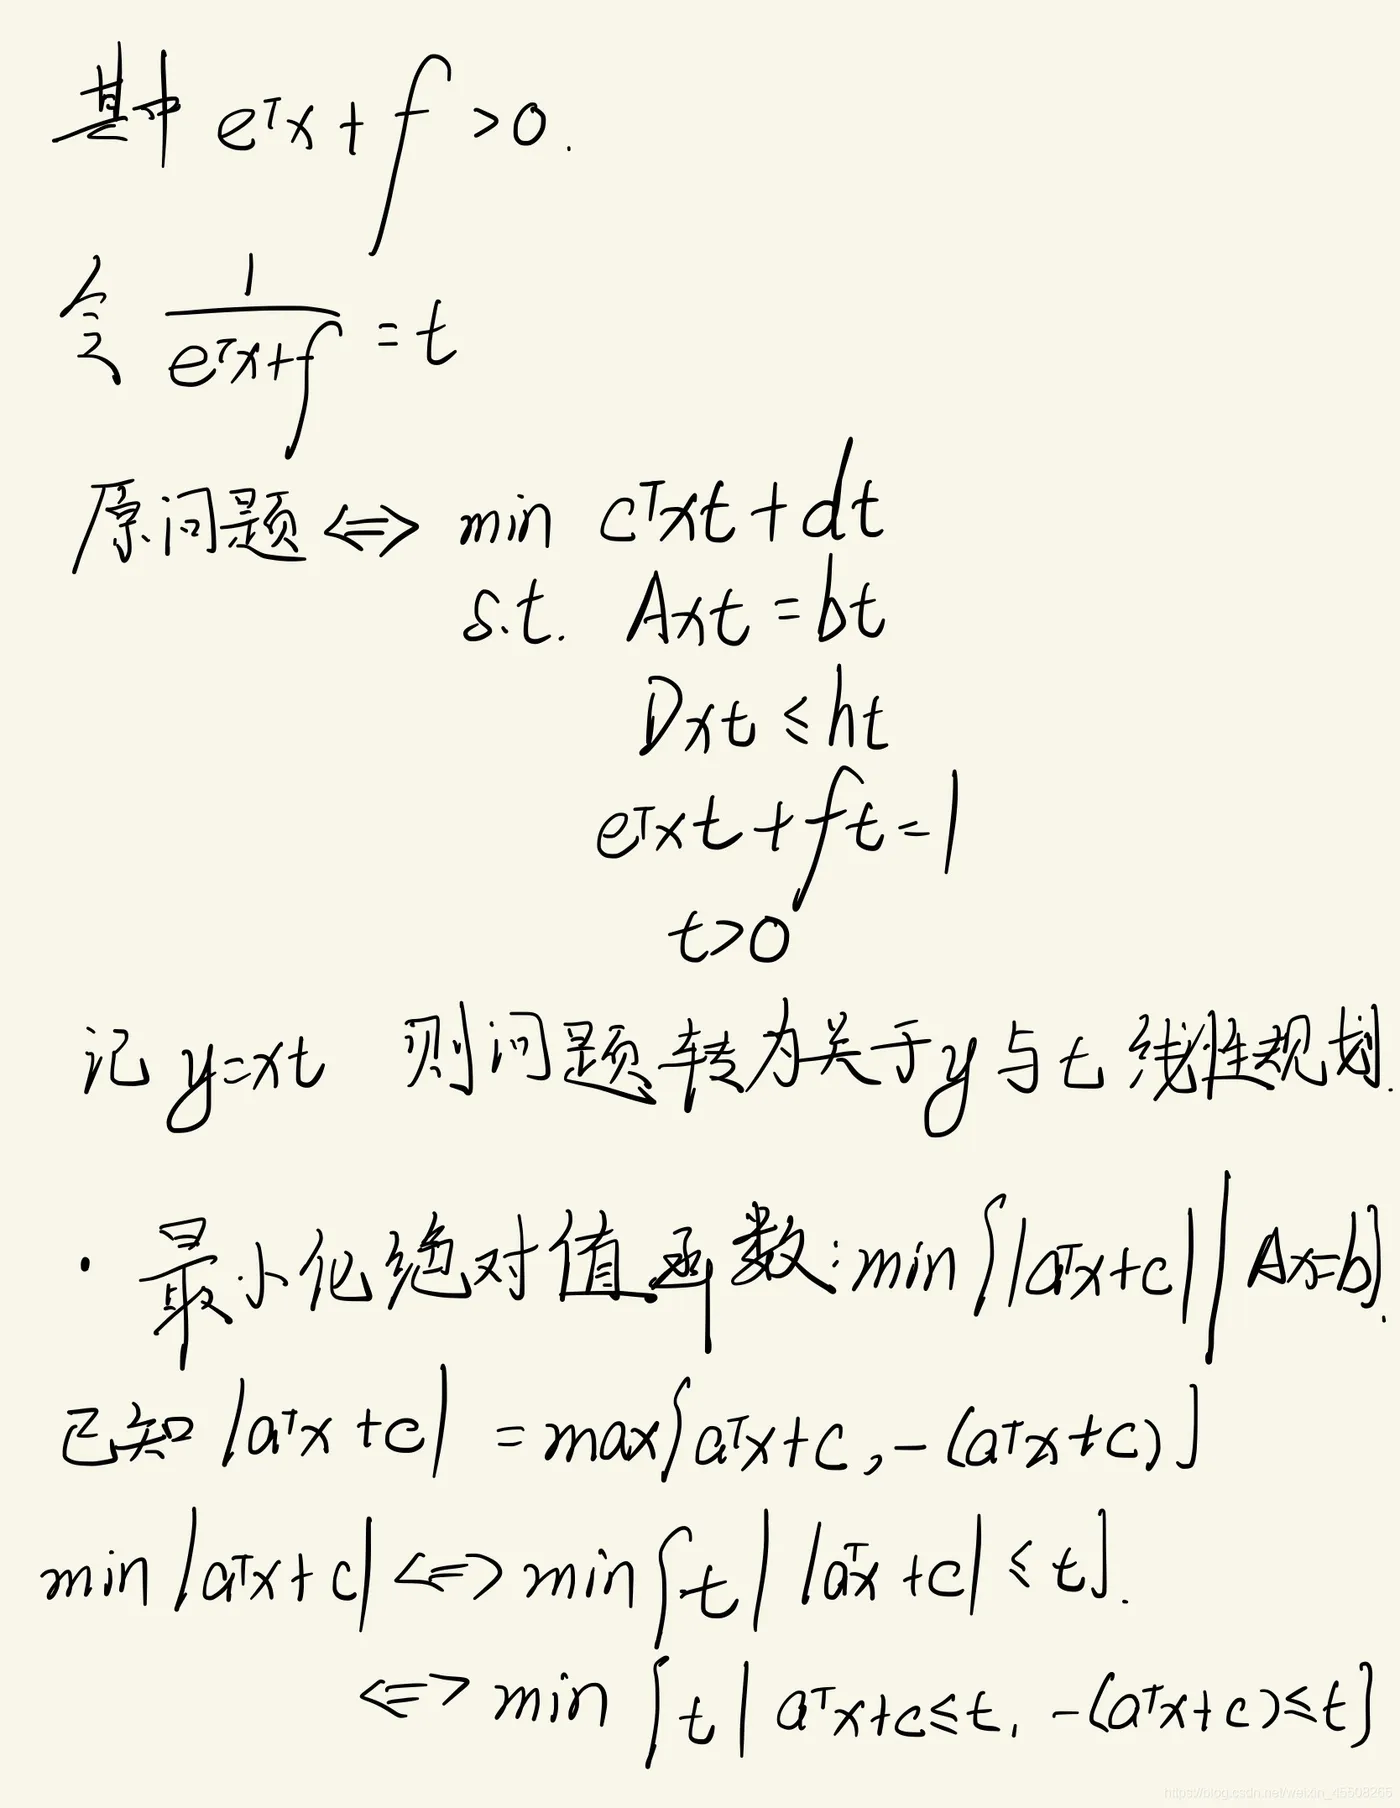 其中 eᵀx + f > 0.
令 1/(eᵀx+f) = t
原问题 <=> min cᵀxt + dt
s.t. Axt = bt
Dxt ≤ ht
eᵀxt + ft = 1
t>0
记 y=xt 则问题转为关于y与t线性规划.
· 最小化绝对值函数: min{|aᵀx+c| | Ax=b}.
已知 |aᵀx+c| = max{aᵀx+c, -(aᵀx+c)}
min |aᵀx+c| <=> min{t | |aᵀx+c| ≤ t}.
<=> min {t | aᵀx+c≤t, -(aᵀx+c)≤t}
https://blog.csdn.net/weixin_45508265